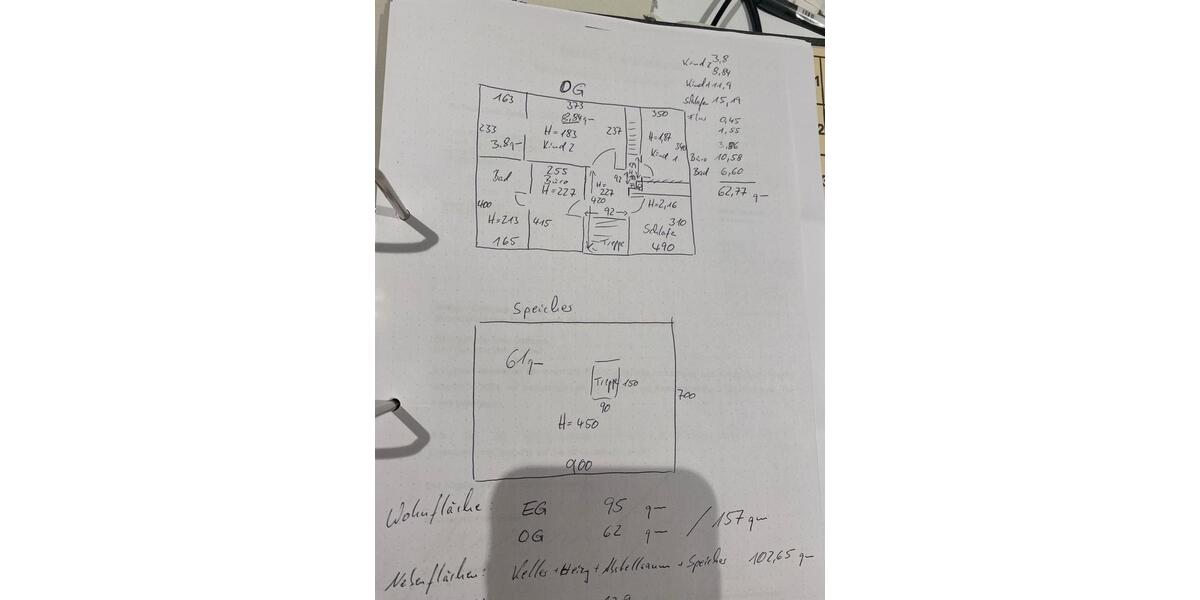 Kind 2 3,8
8,84
Kind 1 11,9
Schlafen 15,19
Flur 0,45
1,55
3,86
Büro 10,58
Bad 6,60
62,77 qm
OG
163
373
8,84 qm
350
233
H=183
237
H=1,87
3,8 qm
Kind 2
340
Kind 1
Bad
255
Büro
H=227
92
H=
227
400
420
H=2,16
H=213
415
92
310
Schlafen
165
Treppe
490
Speicher
61 qm
Treppe
150
90
700
H=450
900
Wohnfläche: EG 95 qm
OG 62 qm / 157 qm
Nebenflächen: Keller + Heizg + Abstellraum + Speicher 102,65 qm